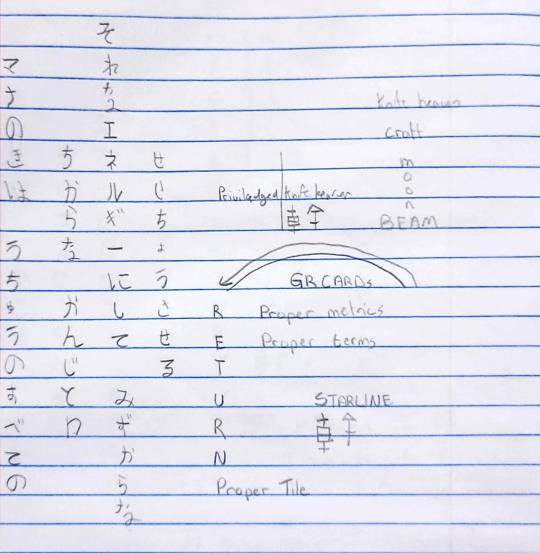 マナのきは うちゅうのすべての
ちからを かんじとり
それをエネルギーにして みずからを
せいちょうさせる
Knife heaven
craft
moon
BEAM
Priviladged Knife heaven
GRCARDs
RETURN
Proper metrics
Proper terms
STARLINE
Proper Tile